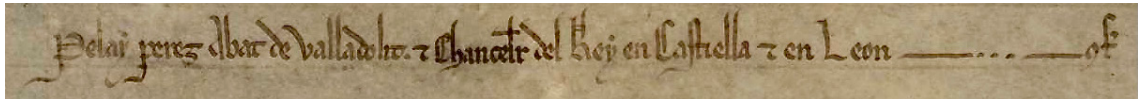 Pelay perez Abat de Valladolit. ⁊ Chancelr del Rey en Castiella ⁊ en Leon ——— ... —— ꝯf